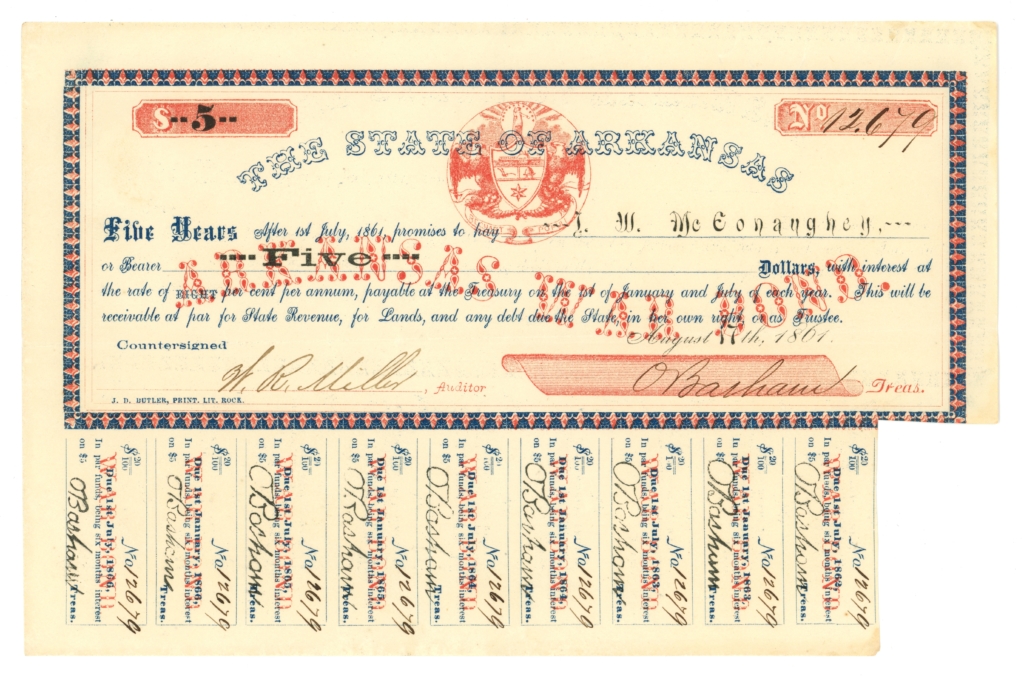 $ --5-- No 12.679
THE STATE OF ARKANSAS
Five Years After 1st July, 1861, promises to pay ---J. W. McConaughey,---
or Bearer ---Five--- Dollars, with interest at
ARKANSAS WAR BOND.
the rate of EIGHT per cent per annum, payable at the Treasury on the 1st of January and July of each year. This will be
receivable at par for State Revenue, for Lands, and any debt due the State, in her own right, or as Trustee.
August 17th, 1861.
Countersigned
W. R. Miller, Auditor OBasham Treas.
J. D. BUTLER, PRINT. LIT. ROCK.
$ 20/100 No 12679
Due 1st July, 1866,
In par funds, being six months interest
on $5 OBasham Treas.
$ 20/100 No 12679
Due 1st January, 1866,
In par funds, being six months interest
on $5 OBasham Treas.
$ 20/100 No 12679
Due 1st July, 1865,
In par funds, being six months interest
on $5 OBasham Treas.
$ 20/100 No 12679
Due 1st January, 1865,
In par funds, being six months interest
on $5 OBasham Treas.
$ 20/100 No 12679
Due 1st July, 1864,
In par funds, being six months interest
on $5 OBasham Treas.
$ 20/100 No 12679
Due 1st January, 1864,
In par funds, being six months interest
on $5 OBasham Treas.
$ 20/100 No 12679
Due 1st July, 1863,
In par funds, being six months interest
on $5 OBasham Treas.
$ 20/100 No 12679
Due 1st January, 1863,
In par funds, being six months interest
on $5 OBasham Treas.
$ 20/100 No 12679
Due 1st July, 1862,
In par funds, being six months interest
on $5 OBasham Treas.